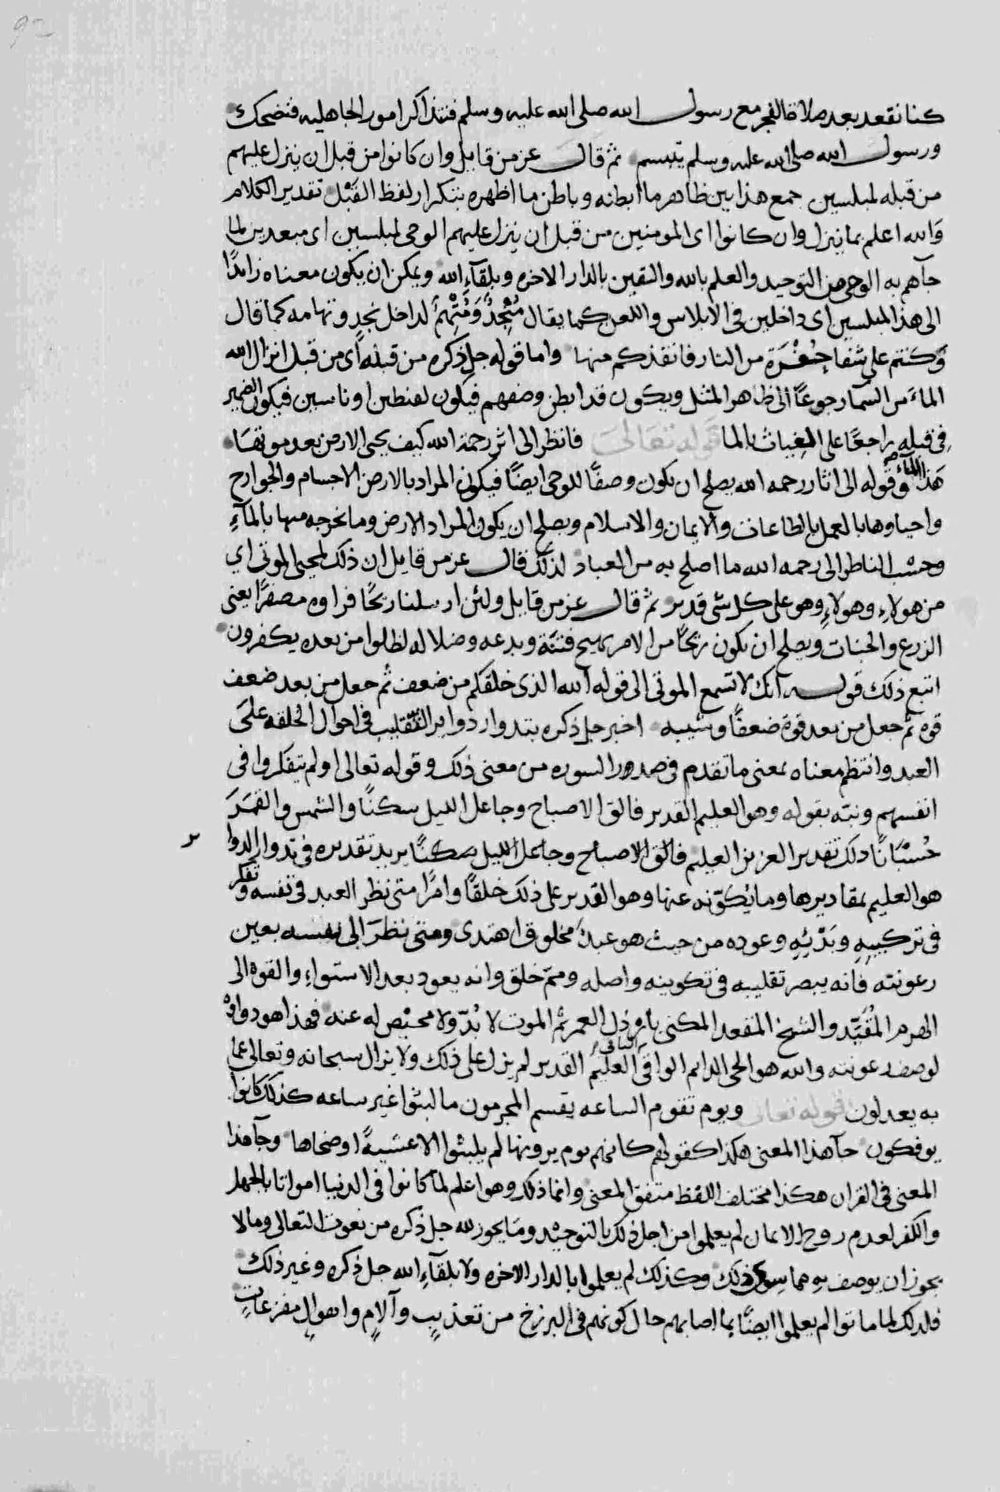 كنا نقعد بعد صلاة الفجر مع رسول الله صلى الله عليه وسلم فنتذاكر امور الجاهليه فنضحك
ورسول الله صلى الله عليه وسلم يتبسم ثم قال عز من قايل وان كانوا من قبل ان ينزل عليهم
من قبله لمبلسين جمع هذا بين ظاهر ما ابطنه وباطن ما اظهره بتكرار لفظ القَبْل تقدير الكلام
والله اعلم بما ينزل وان كانوا اى المومنين من قبل ان ينزل عليهم الوحى لمبلسين اى مبعدين لما
جآهم به الوحى من التوحيد والعلم بالله واليقين بالدار الاخره وبلقآء الله ويمكن ان يكون معناه زايدًا
الى هذا المبلسين اى داخلين فى الابلاس واللعن كما يقال مُنْجِدٌ وَمُتْهِمٌ لداخل نجد وتهامه كما قال
وكنتم على شفا حفرة من النار فانقذكم منها واما قوله جل ذكره من قبله اى من قبل انزال الله
المآء من السمآ رجوعًا الى ظاهر المثل ويكون قد ابطن وصفهم فيكون لقنطين او ناسين فيكون الضمير
فى قبله راجعًا على الغياث بالما قوله تعالى فانظر الى اثر رحمة الله كيف يحى الارض بعد موتها
هذا المآء وقوله الى اثار رحمه الله يصلح ان يكون وصفًا للوحى ايضًا فيكون المراد بالارض الاجسام والجوارح
واحياوها بالعمل بالطاعات والايمان والاسلام ويصلح ان يكون المراد الارض وما يخرجه منها بالمآء
وحسب الناظر الى رحمه الله ما اصلح به من العباد لذلك قال عز من قايل ان ذلك لمحيى الموتى اى
من هولاء وهولاء وهو على كل شى قدير ثم قال عز من قايل ولئن ارسلنا ريحًا فراوه مصفرًا يعنى
الزرع والجنات ويصلح ان يكون ريحًا من الامر يهيج فتنة وبدعه وضلاله لظلوا من بعده يكفرون
اتبع ذلك قوله انك لا تسمع الموتى الى قوله الله الذى خلقكم من ضعف ثم جعل من بعد ضعف
قوه ثم جعل من بعد قوة ضعفًا وشيبه اخبر جل ذكره بتدوار دواير التقليب فى احوال الخلقه على
العبد وانتظم معناه بمعنى ما تقدم فى صدور السوره من معنى ذلك وقوله تعالى اولم يتفكروا فى
انفسهم ونبه بقوله وهو العليم القدير فالق الاصباح وجاعل الليل سكنًا والشمس والقمر
حُسْبَانًا ذلك تقدير العزيز العليم فالق الاصباح وجاعل الليل سكنًا يريد تقديره فى تدوار الدوا
ير
هو العليم بمقاديرها وما يكوّنه عنها وهو القدير على ذلك خلقًا وامرًا متى نظر العبد فى نفسه وتفكر
فى تركيبه وبَدْئِهِ وعوده من حيث هو عبد مخلوق اهتدى ومتى نظر الى نفسه بعين
رعونته فانه يبصر تقليبه فى تكوينه واصله ومم خلق وانه يعود بعد الاستواء والقوه الى
الهرم المُقَيِّد والشيخ المقعد المكنى بارذل العمر ثم الموت لا بُدّ ولا محيص له عنه فهذا هو دواوه
لوصف رعونته والله هو الحى الدايم الواقى الباقى العليم القدير لم يزل على ذلك ولا يزال سبحانه وتعالى عما
به يعدلون قوله تعالى ويوم تقوم الساعه يقسم المجرمون ما لبثوا غير ساعه كذلك كانوا
يوفكون جآ هذا المعنى هكذا كقوله كانهم يوم يرونها لم يلبثوا الا عشيةً او ضحاها وجآ هذا
المعنى فى القران هكذا مختلف اللفظ متفق المعنى وانما ذلك وهو اعلم لما كانوا فى الدنيا امواتا بالجهل
والكفر لعدم روح الايمان لم يعلموا من اجل ذلك بالتوحيد وما يجوز لله جل ذكره من نعوت التعالى وما لا
يجوز ان يوصف به مما سوى ذلك وكذلك لم يعلموا بالدار الاخره ولا بلقآء الله جل ذكره وغير ذلك
فلذلك لما ماتوا لم يعلموا ايضًا بما اصابهم حال كونهم فى البرزخ من تعذيبٍ وآلامٍ واهوالٍ مفزعاتٍ